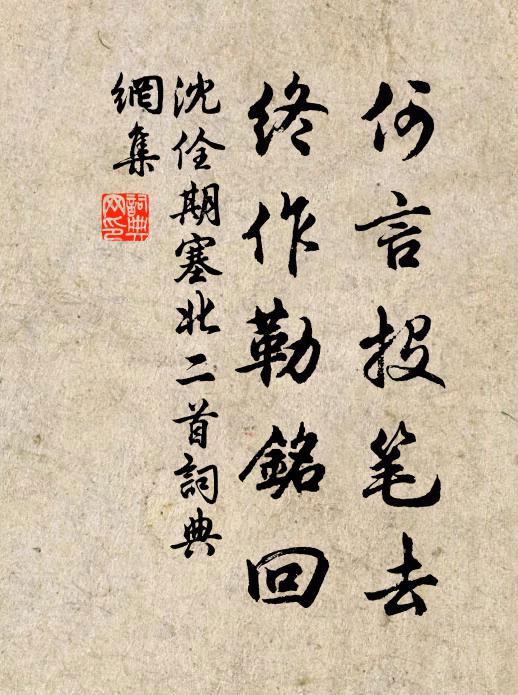 何言投笔去
終作勒銘回
沈佺期塞北二首詞典
網集
詞典
网印